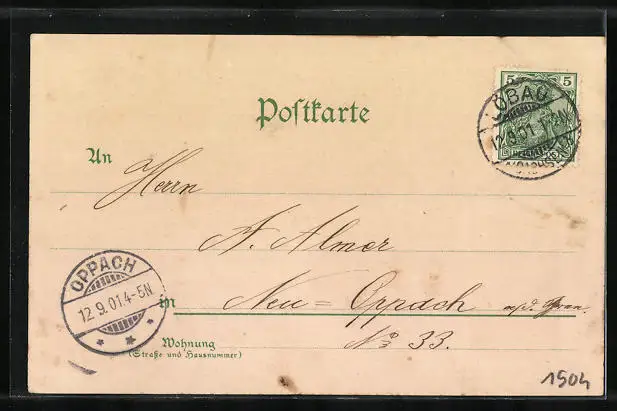 5 5
ÖBAU
12.9.01.
Postkarte
An
Herrn
A. Almer
OPPACH
12.9.01.4-5N
* * *
in Neu=Oppach
Wohnung
(Straße und Hausnummer)
No 33.
1504